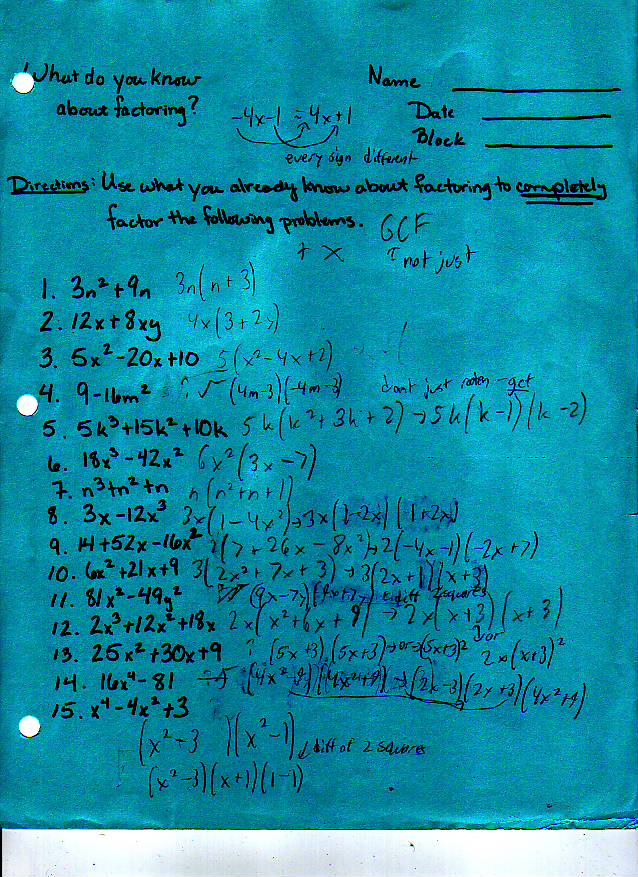 What do you know Name
about factoring? -4x-1 = 4x+1 Date
Block
every sign different
Directions: Use what you already know about factoring to completely
factor the following problems. GCF
+ x ↑ not just
1. 3n²+9n 3n(n+3)
2. 12x+8xy 4x(3+2y)
3. 5x²-20x+10 5(x²-4x+2)
4. 9-16m² √ (4m-3)(-4m-3) dont just gcf
5. 5k³+15k²+10k 5k(k²+3k+2)→5k(k-1)(k-2)
6. 18x³-42x² 6x²(3x-7)
7. n³+n²+n n(n²+n+1)
8. 3x-12x³ 3x(1-4x²)→3x(1-2x)(1+2x)
9. 14+52x-16x² 2(7+26x-8x²)→2(-4x-1)(-2x+7)
10. 6x²+21x+9 3(2x²+7x+3)→3(2x+1)(x+3)
11. 81x²-49y² (9x-7y)(9x+7y) diff 2 squares
12. 2x³+12x²+18x 2x(x²+6x+9)→2x(x+3)(x+3)
13. 25x²+30x+9 (5x+3)(5x+3)→or→(5x+3)² or 2x(x+3)²
14. 16x⁴-81 (4x²-9)(4x²+9)→(2x-3)(2x+3)(4x²+9)
15. x⁴-4x²+3
(x²-3)(x²-1) diff of 2 squares
(x²-3)(x+1)(1-1)